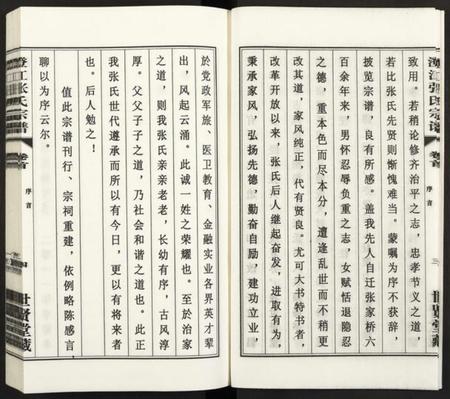 澄江张氏宗谱
卷首
序言
三
世贤堂藏
致用。若稍论修齐治平之志，忠孝节义之道，
若比张氏先贤则惭愧难当。蒙嘱为序不获辞，
披览宗谱，良有所感。盖我先人自迁张家桥六
百余年来，男怀忍辱负重之志，女赋恬退隐忍
之德，重本色而尽本分，遭逢乱世而不稍更
改其道，家风纯正，代有贤良。尤可大书特书者，
改革开放以来，张氏后人继起奋发，进取有为，
秉承家风，弘扬先德，勤奋自励，建功立业，
於党政军旅、医卫教育、金融实业各界英才辈
出，风起云涌。此诚一姓之荣耀也。至於治家
之道，则我张氏亲亲老老，长幼有序，古风淳
厚。父父子子之道，乃社会和谐之道也。此正
我张氏世代遵承而所以有今日，更以有将来者
也。后人勉之！
值此宗谱刊行、宗祠重建，依例略陈感言
聊以为序云尔。
澄江张氏宗谱
卷首
序言
世贤堂藏